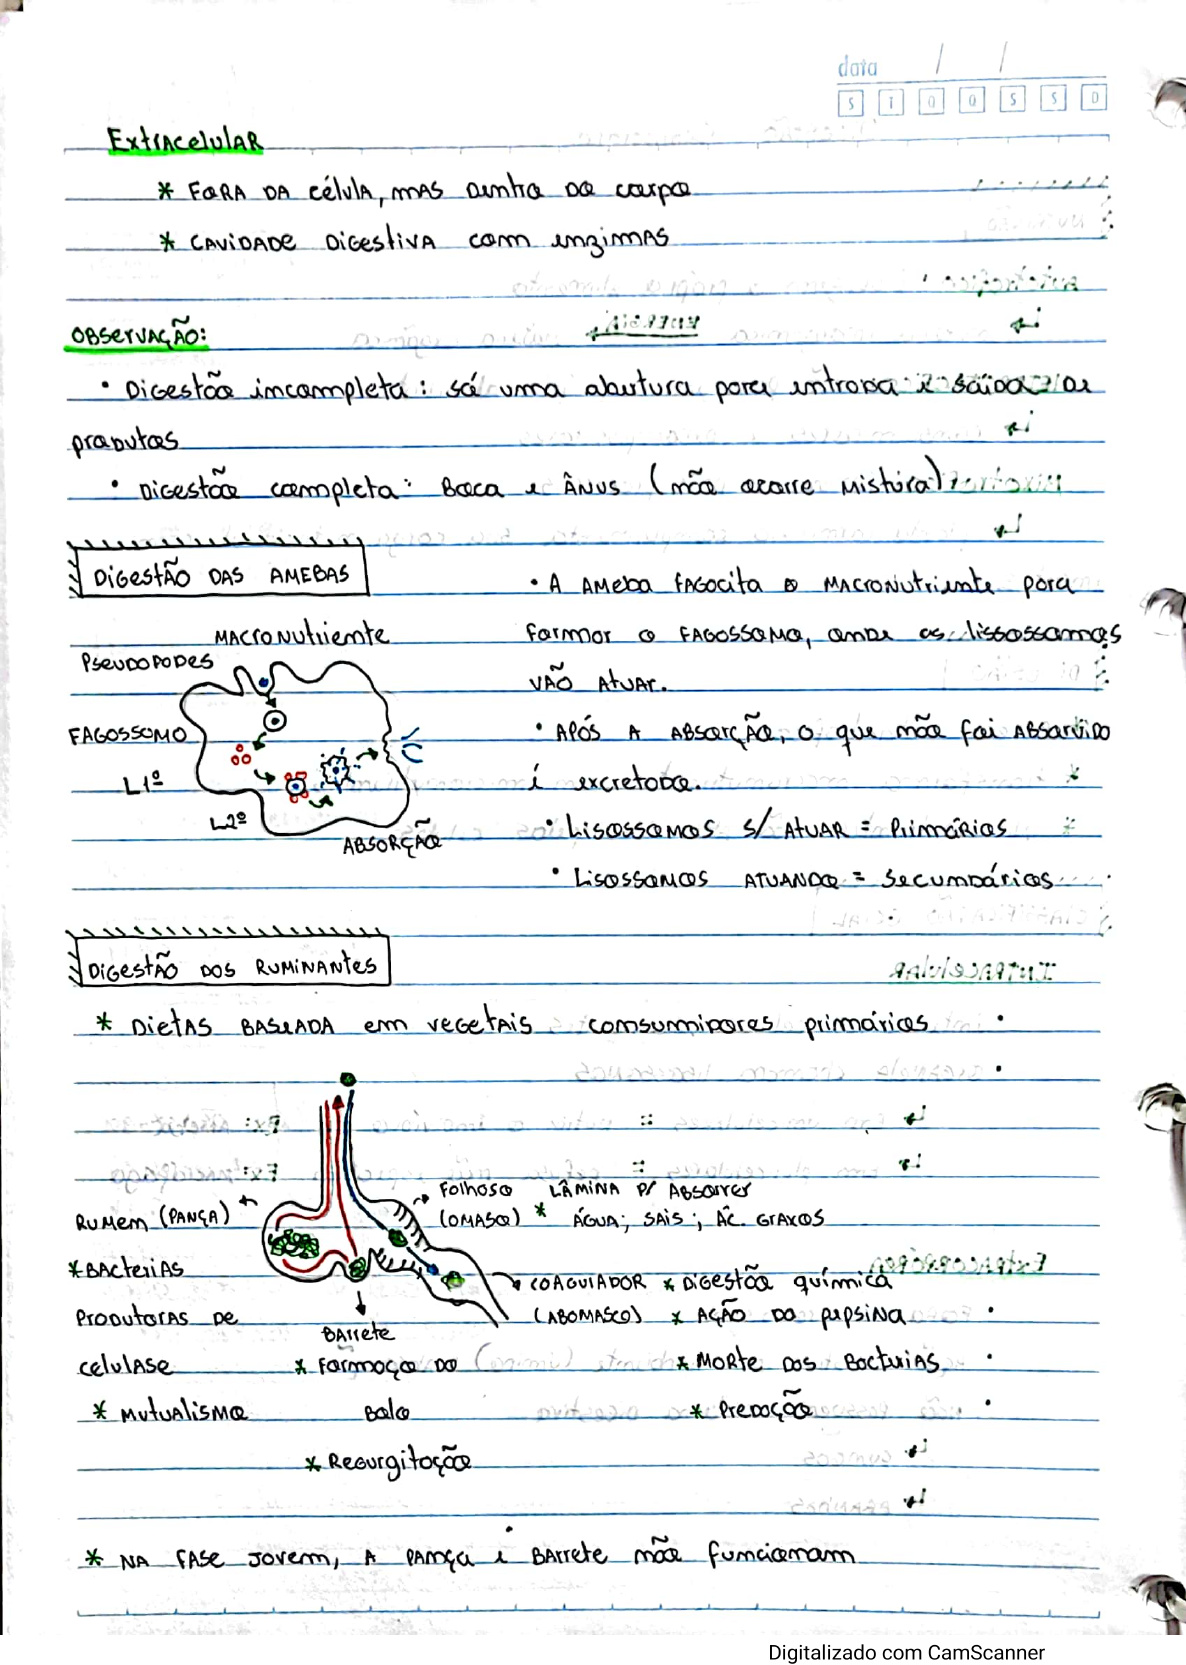 data / /
S T Q Q S S D
Extracelular
* Fora da célula, mas dentro do corpo
* Cavidade digestiva com enzimas
Observação:
• Digestão incompleta: só uma abertura para entrada e saída de
produtos
• Digestão completa: Boca e Ânus (não ocorre mistura)
Digestão das Amebas
• A Ameba fagocita o macronutriente para
Macronutriente
formar o fagossomo, onde os lissossomos
Pseudopodes
vão atuar.
Fagossomo
• Após a absorção, o que não foi absorvido
L1º
é excretado.
L2º
• Lisossomos s/ atuar = Primários
Absorção
• Lisossomos atuando = Secundários
Digestão dos Ruminantes
* Dietas baseada em vegetais consumidores primários
Folhoso Lâmina p/ absorver
Rumem (Pança) (Omaso) * Água; sais; Ác. graxos
* Bacterias
Coagulador * Digestão química
Produtoras de
(Abomaso) * Ação da pepsina
Barrete
celulase * Formação do * Morte das Bacterias
* Mutualismo Bolo * Predação
* Regurgitação
* Na fase jovem, a pança e barrete não funcionam
Digitalizado com CamScanner